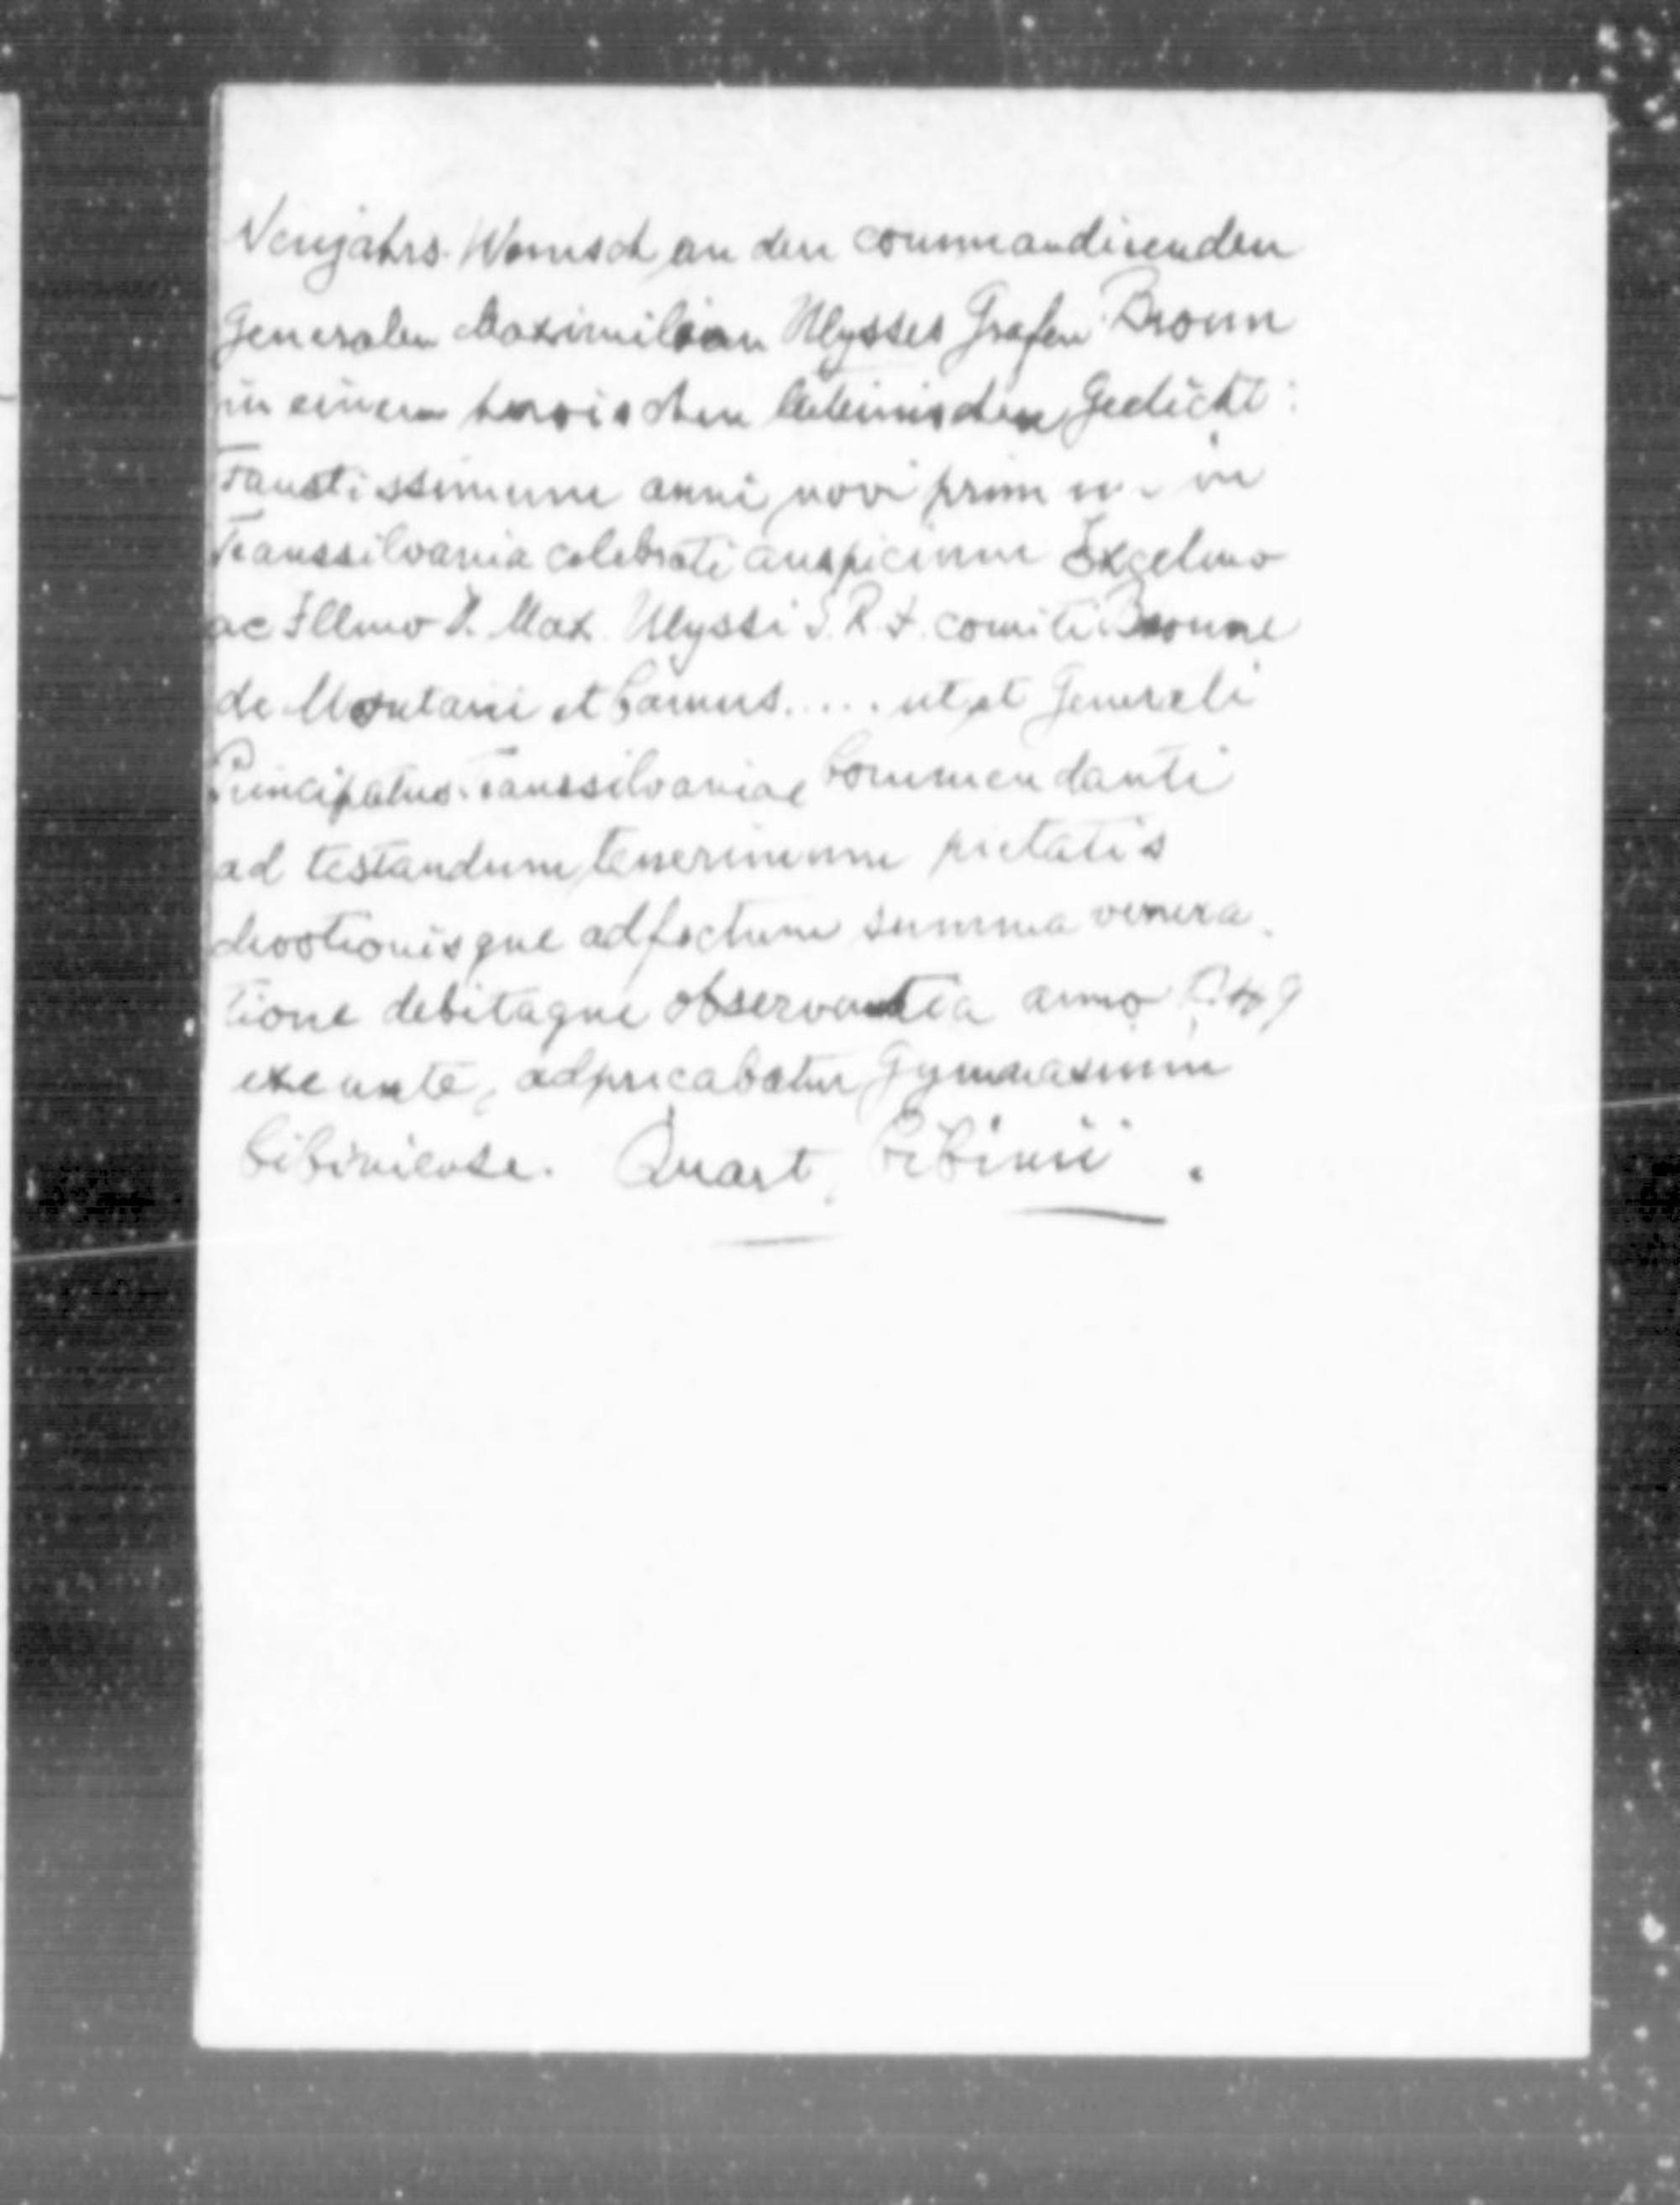 Neujahrs-Wunsch an den commandirenden
Generalen Maximilian Ulysses Grafen Broun
in einem heroischen lateinischen Gedicht:
Faustissimum anni novi primum in
Transsilvania celebrati auspicium Excelmo
ac Illmo D. Max. Ulyssi S. R. I. comiti Broune
de Montani et Camus..... ut et Generali
Principatus Transsilvaniae Commendanti
ad testandum tenerimum pietatis
devotionisque adfectum summa venera-
tione debitaque observantia anno
exeunte, adprecabatur Gymnasium
Cibiniense. Quart, Cibinii.